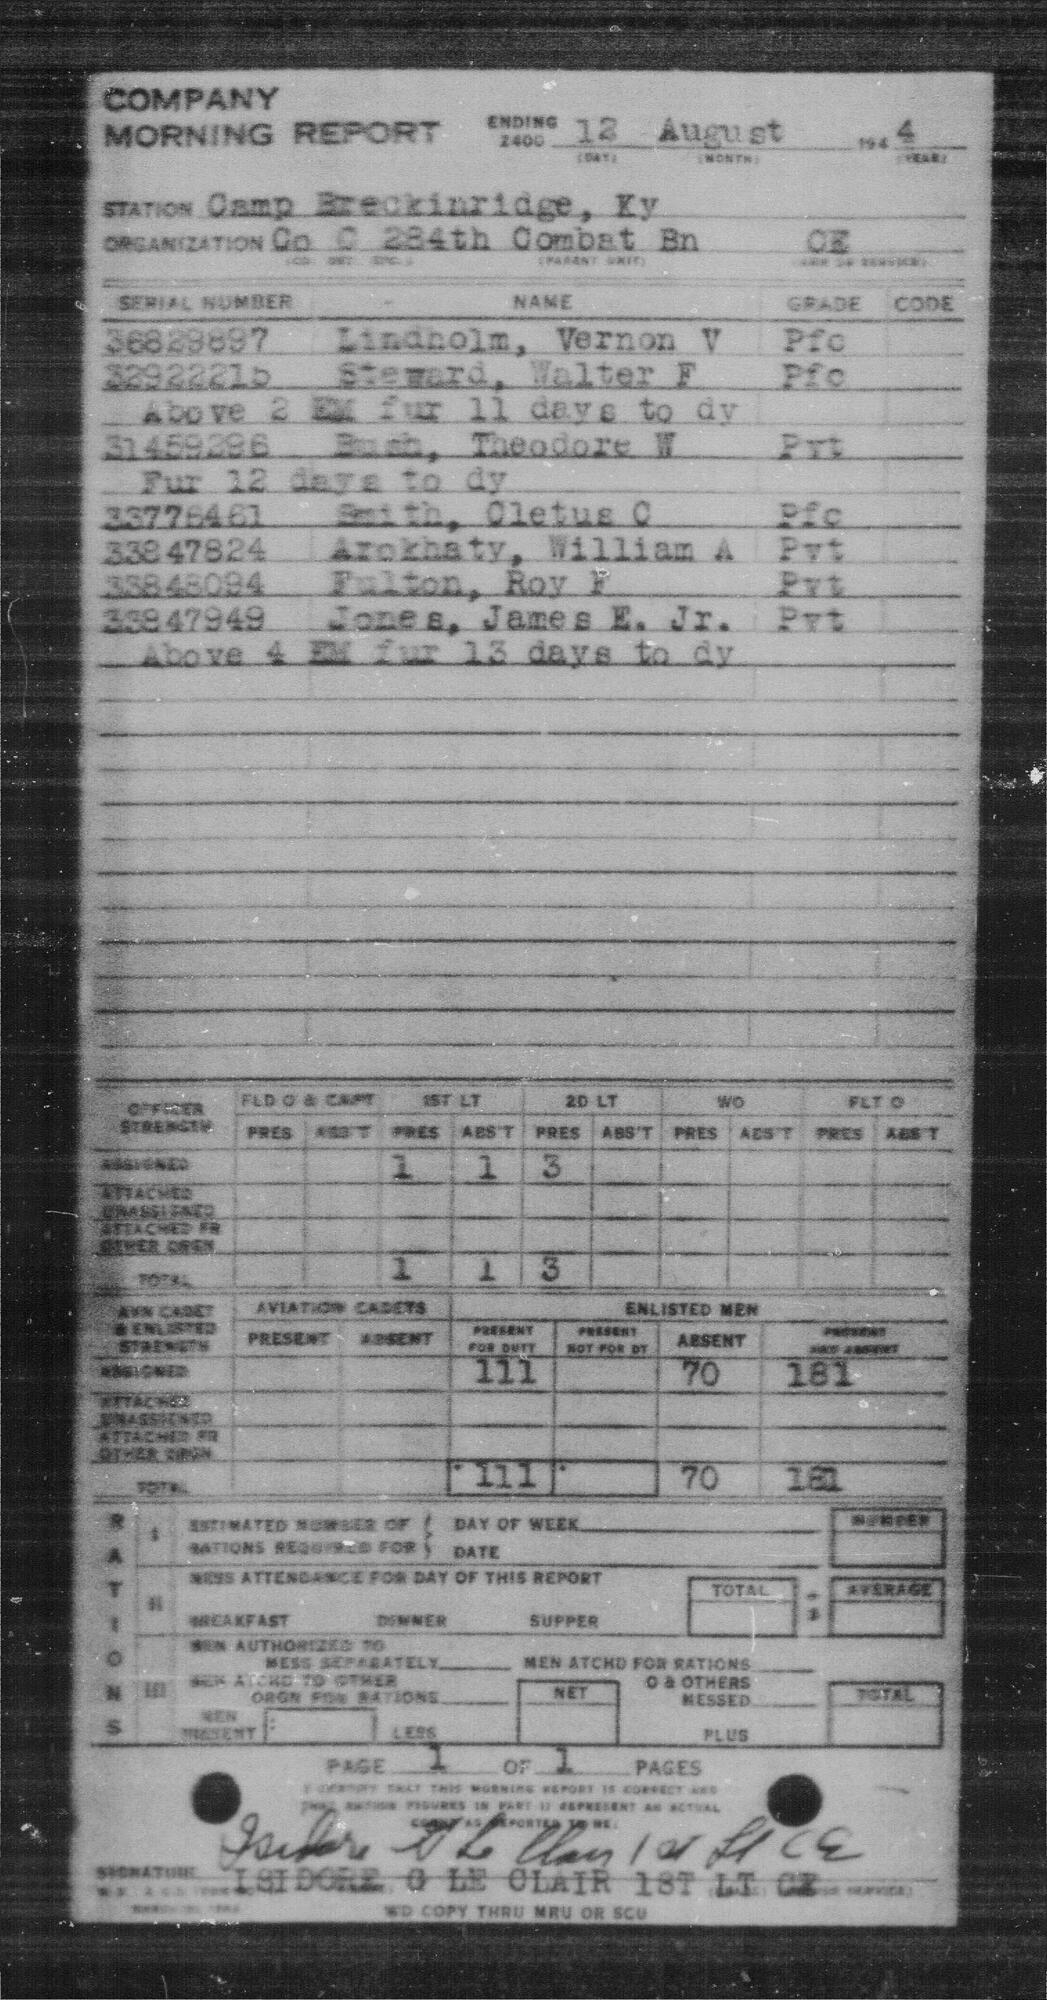 COMPANY
MORNING REPORT ENDING 2400 12 August 194 4
(DAY) (MONTH) (YEAR)
STATION Camp Breckinridge, Ky
ORGANIZATION Co C 284th Combat Bn CE
(PARENT UNIT)
SERIAL NUMBER NAME GRADE CODE
36829897 Lindholm, Vernon V Pfc
32922215 Steward, Walter F Pfc
Above 2 EM fur 11 days to dy
31459296 Bush, Theodore W Pvt
Fur 12 days to dy
33776461 Smith, Cletus C Pfc
33847824 Arokhaty, William A Pvt
33848094 Fulton, Roy F Pvt
33847949 Jones, James E. Jr. Pvt
Above 4 EM fur 13 days to dy
OFFICER STRENGTH FLD O & CAPT 1ST LT 2D LT WO FLT O
PRES ABS'T PRES ABS'T PRES ABS'T PRES ABS'T PRES ABS'T
ASSIGNED 1 1 3
ATTACHED UNASSIGNED
ATTACHED FR OTHER ORGN
TOTAL 1 1 3
AVN CADET & ENLISTED STRENGTH AVIATION CADETS ENLISTED MEN
PRESENT ABSENT PRESENT FOR DUTY PRESENT NOT FOR DY ABSENT PRESENT AND ABSENT
ASSIGNED 111 70 181
ATTACHED UNASSIGNED
ATTACHED FR OTHER ORGN
TOTAL 111 70 181
RATIONS
I ESTIMATED NUMBER OF RATIONS REQUIRED FOR DAY OF WEEK NUMBER
DATE
II MESS ATTENDANCE FOR DAY OF THIS REPORT TOTAL ÷ 3 AVERAGE
BREAKFAST DINNER SUPPER
III MEN AUTHORIZED TO
MESS SEPARATELY MEN ATCHD FOR RATIONS
MEN ATCHD TO OTHER
ORGN FOR RATIONS NET O & OTHERS MESSED TOTAL
MEN PRESENT LESS PLUS
PAGE 1 OF 1 PAGES
I CERTIFY THAT THIS MORNING REPORT IS CORRECT AND
THAT RATION FIGURES IN PART II REPRESENT AN ACTUAL
COUNT AS REPORTED TO ME:
Isidore G Le Clair 1st Lt CE
SIGNATURE ISIDORE G LE CLAIR 1ST LT CE
WD COPY THRU MRU OR SCU